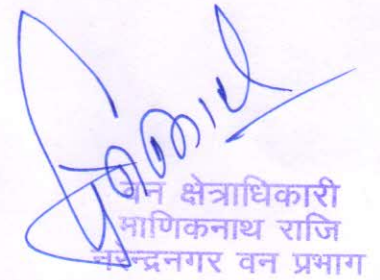 वन क्षेत्राधिकारी
माणिकनाथ राजि
नरेन्द्रनगर वन प्रभाग